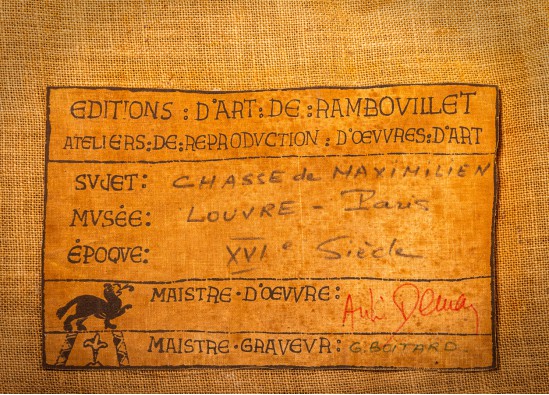 EDITIONS : D'ART : DE : RAMBOVILLET
ATELIERS : DE : REPRODVCTION : D'ŒVVRES : D'ART
SVJET : CHASSE de MAXIMILIEN
MVSÉE : LOUVRE - Paris
ÉPOQVE : XVIe Siècle
MAISTRE · D'OEVVRE :
MAISTRE · GRAVEVR : G. BOITARD